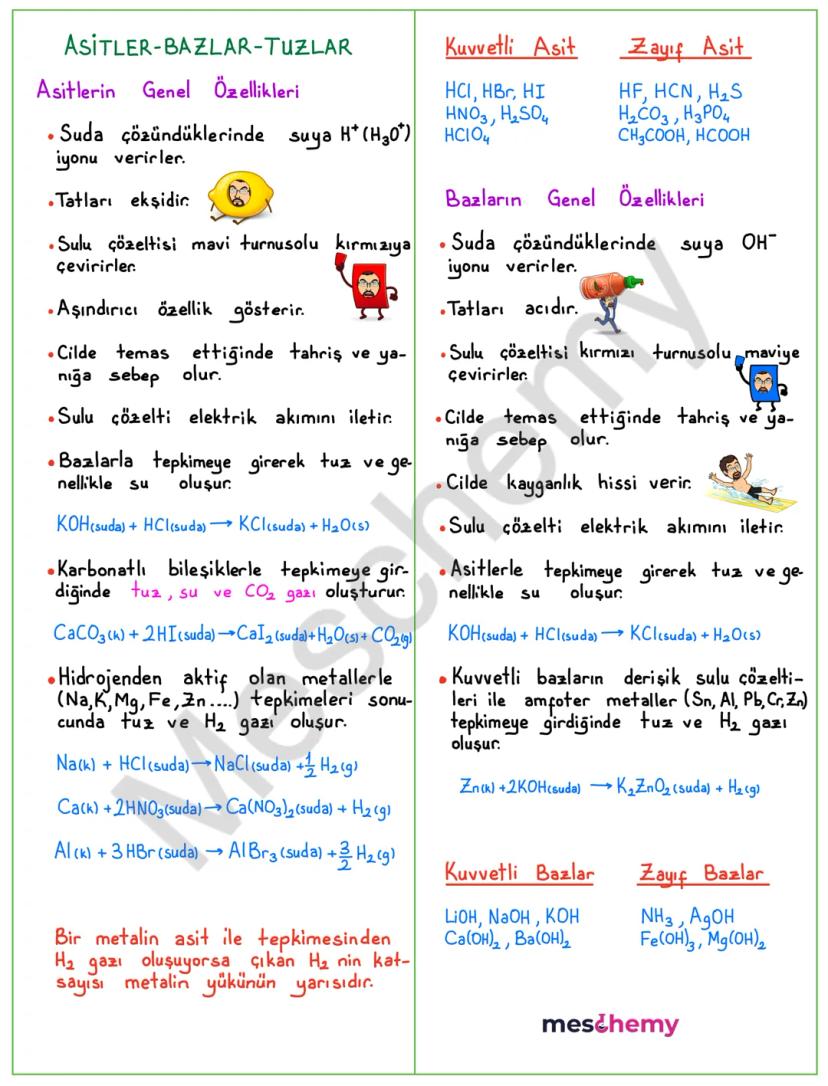 ASİTLER-BAZLAR-TUZLAR
Asitlerin Genel Özellikleri
• Suda çözündüklerinde suya H⁺(H₃O⁺)
iyonu verirler.
• Tatları ekşidir.
• Sulu çözeltisi mavi turnusolu kırmızıya
çevirirler.
• Aşındırıcı özellik gösterir.
• Cilde temas ettiğinde tahriş ve ya-
nığa sebep olur.
• Sulu çözelti elektrik akımını iletir.
• Bazlarla tepkimeye girerek tuz ve ge-
nellikle su oluşur.
KOH(suda) + HCl(suda) → KCl(suda) + H₂O(s)
• Karbonatlı bileşiklerle tepkimeye gir-
diğinde tuz, su ve CO₂ gazı oluşturur.
CaCO₃(k) + 2HI(suda) → CaI₂(suda) + H₂O(s) + CO₂(g)
• Hidrojenden aktif olan metallerle
(Na,K,Mg,Fe,Zn....) tepkimeleri sonu-
cunda tuz ve H₂ gazı oluşur.
Na(k) + HCl(suda) → NaCl(suda) + 1/2 H₂(g)
Ca(k) + 2HNO₃(suda) → Ca(NO₃)₂(suda) + H₂(g)
Al(k) + 3HBr(suda) → AlBr₃(suda) + 3/2 H₂(g)
Bir metalin asit ile tepkimesinden
H₂ gazı oluşuyorsa çıkan H₂ nin kat-
sayısı metalin yükünün yarısıdır.
Kuvvetli Asit Zayıf Asit
HCl, HBr, HI HF, HCN, H₂S
HNO₃, H₂SO₄ H₂CO₃, H₃PO₄
HClO₄ CH₃COOH, HCOOH
Bazların Genel Özellikleri
• Suda çözündüklerinde suya OH⁻
iyonu verirler.
• Tatları acıdır.
• Sulu çözeltisi kırmızı turnusolu maviye
çevirirler.
• Cilde temas ettiğinde tahriş ve ya-
nığa sebep olur.
• Cilde kayganlık hissi verir.
• Sulu çözelti elektrik akımını iletir.
• Asitlerle tepkimeye girerek tuz ve ge-
nellikle su oluşur.
KOH(suda) + HCl(suda) → KCl(suda) + H₂O(s)
• Kuvvetli bazların derişik sulu çözelti-
leri ile amfoter metaller (Sn, Al, Pb,Cr,Zn)
tepkimeye girdiğinde tuz ve H₂ gazı
oluşur.
Zn(k) + 2KOH(suda) → K₂ZnO₂(suda) + H₂(g)
Kuvvetli Bazlar Zayıf Bazlar
LiOH, NaOH, KOH NH₃, AgOH
Ca(OH)₂, Ba(OH)₂ Fe(OH)₃, Mg(OH)₂
meschemy
Meschemy